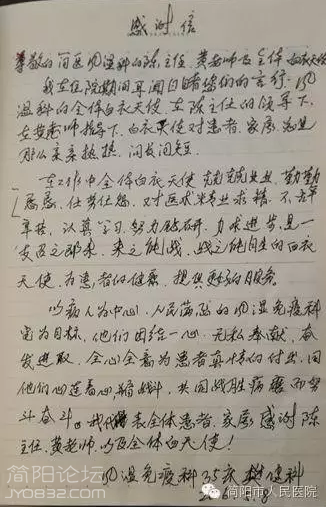 感谢信
尊敬的简医风湿科的陈主任、黄老师及全体白衣天使
我在住院期间耳闻目睹您们的言行。风
湿科的全体白衣天使在陈主任的领导下,
在黄老师指导下,白衣天使对患者、家属总是
那么亲亲热热、问长问短。
在工作中全体白衣天使克克业业,勤勤
恳恳,任劳任怨,对医术精益求精,不辞
辛苦,认真学习,努力钻研,力求进步,是一
支召之即来,来之能战,战之能胜的白衣
天使,为患者的健康,提供
的服务。
以病人为中心,人民满意的风湿免疫科
室为目标,他们团结一心,无私奉献,奋
发进取,全心全意为患者真情的付出,同
他们心连着心
,共同战胜病魔而努
力奋斗。我代表全体患者、家属感谢陈
主任、黄老师,以及全体白天使!
风湿免疫科35床
简阳论坛
JY0832.com
简阳市人民医院